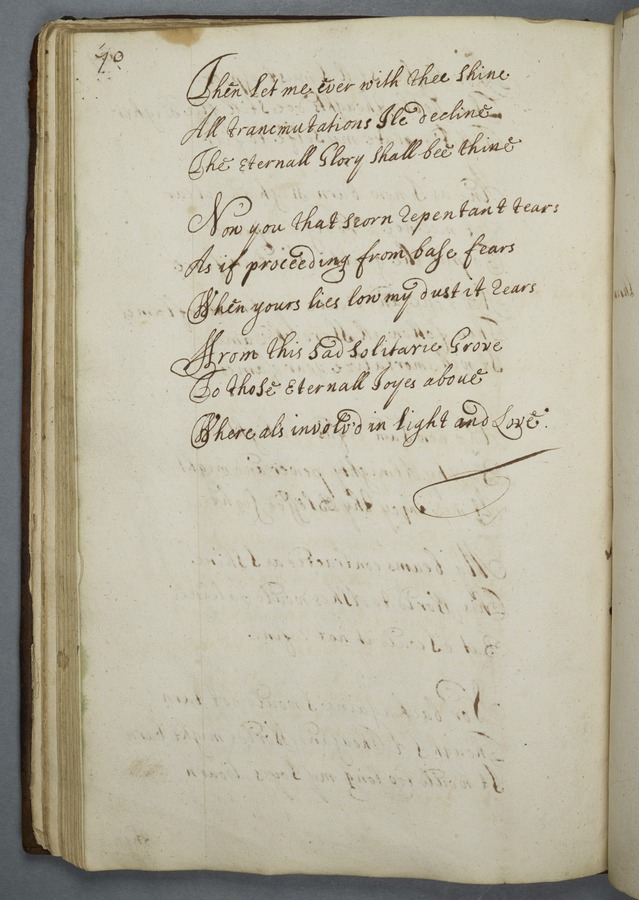 40
Then let me ever with thee shine
All trancmutations Ile decline
The eternall Glory shall bee thine
Now you that scorn repentant tears
As if proceeding from base fears
When yours lies low my dust it rears
From this sad solitarie Grove
To those eternall Joyes above
Where als involv'd in light and Love.